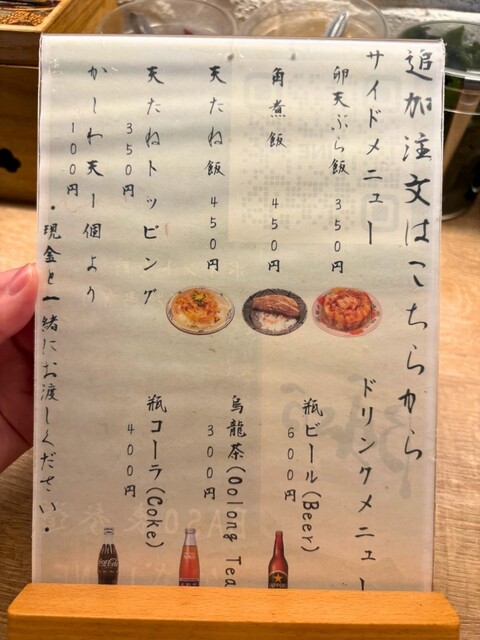 追加注文はこちらから
サイドメニュー
卵天ぷら飯 350円
角煮飯 450円
天たね飯 450円
天たねトッピング
350円
かしわ天一個より
100円
・現金と一緒にお渡しください・
ドリンクメニュー
瓶ビール(Beer)
600円
烏龍茶(Oolong Tea
300円
瓶コーラ(Coke)
400円